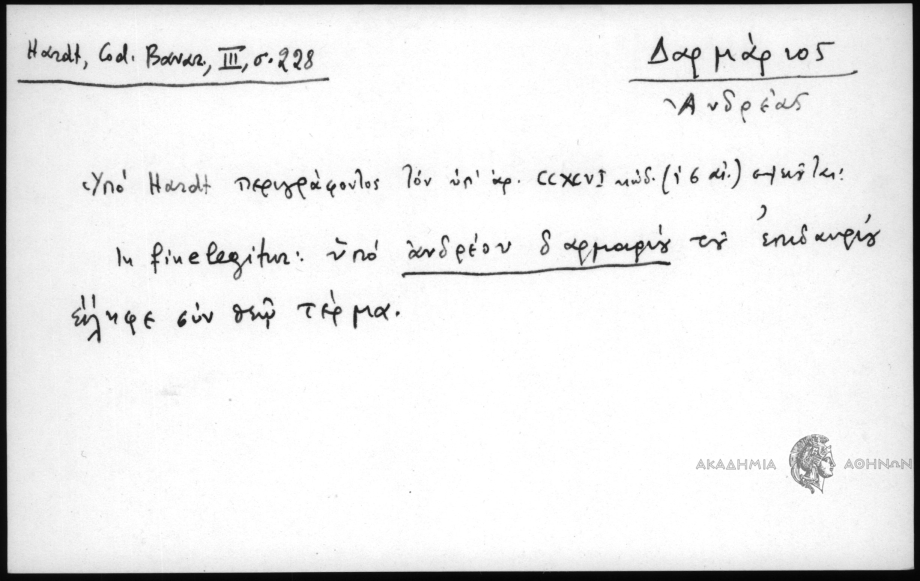 Hardt, Cod. Bavar., III, σ. 228
Δαρμάριος
Ἀνδρέας
Ὑπό Hardt περιγράφοντος τόν ὑπ' ἀρ. CCXCVI κώδ. (ις αἰ.) σημειοῦται:
In fine legitur: ὑπό ἀνδρέου δαρμαρίου τοῦ ἐπιδαυρίου
εἴληφε σύν θεῷ τέρμα.
ΑΚΑΔΗΜΙΑ ΑΘΗΝΩΝ